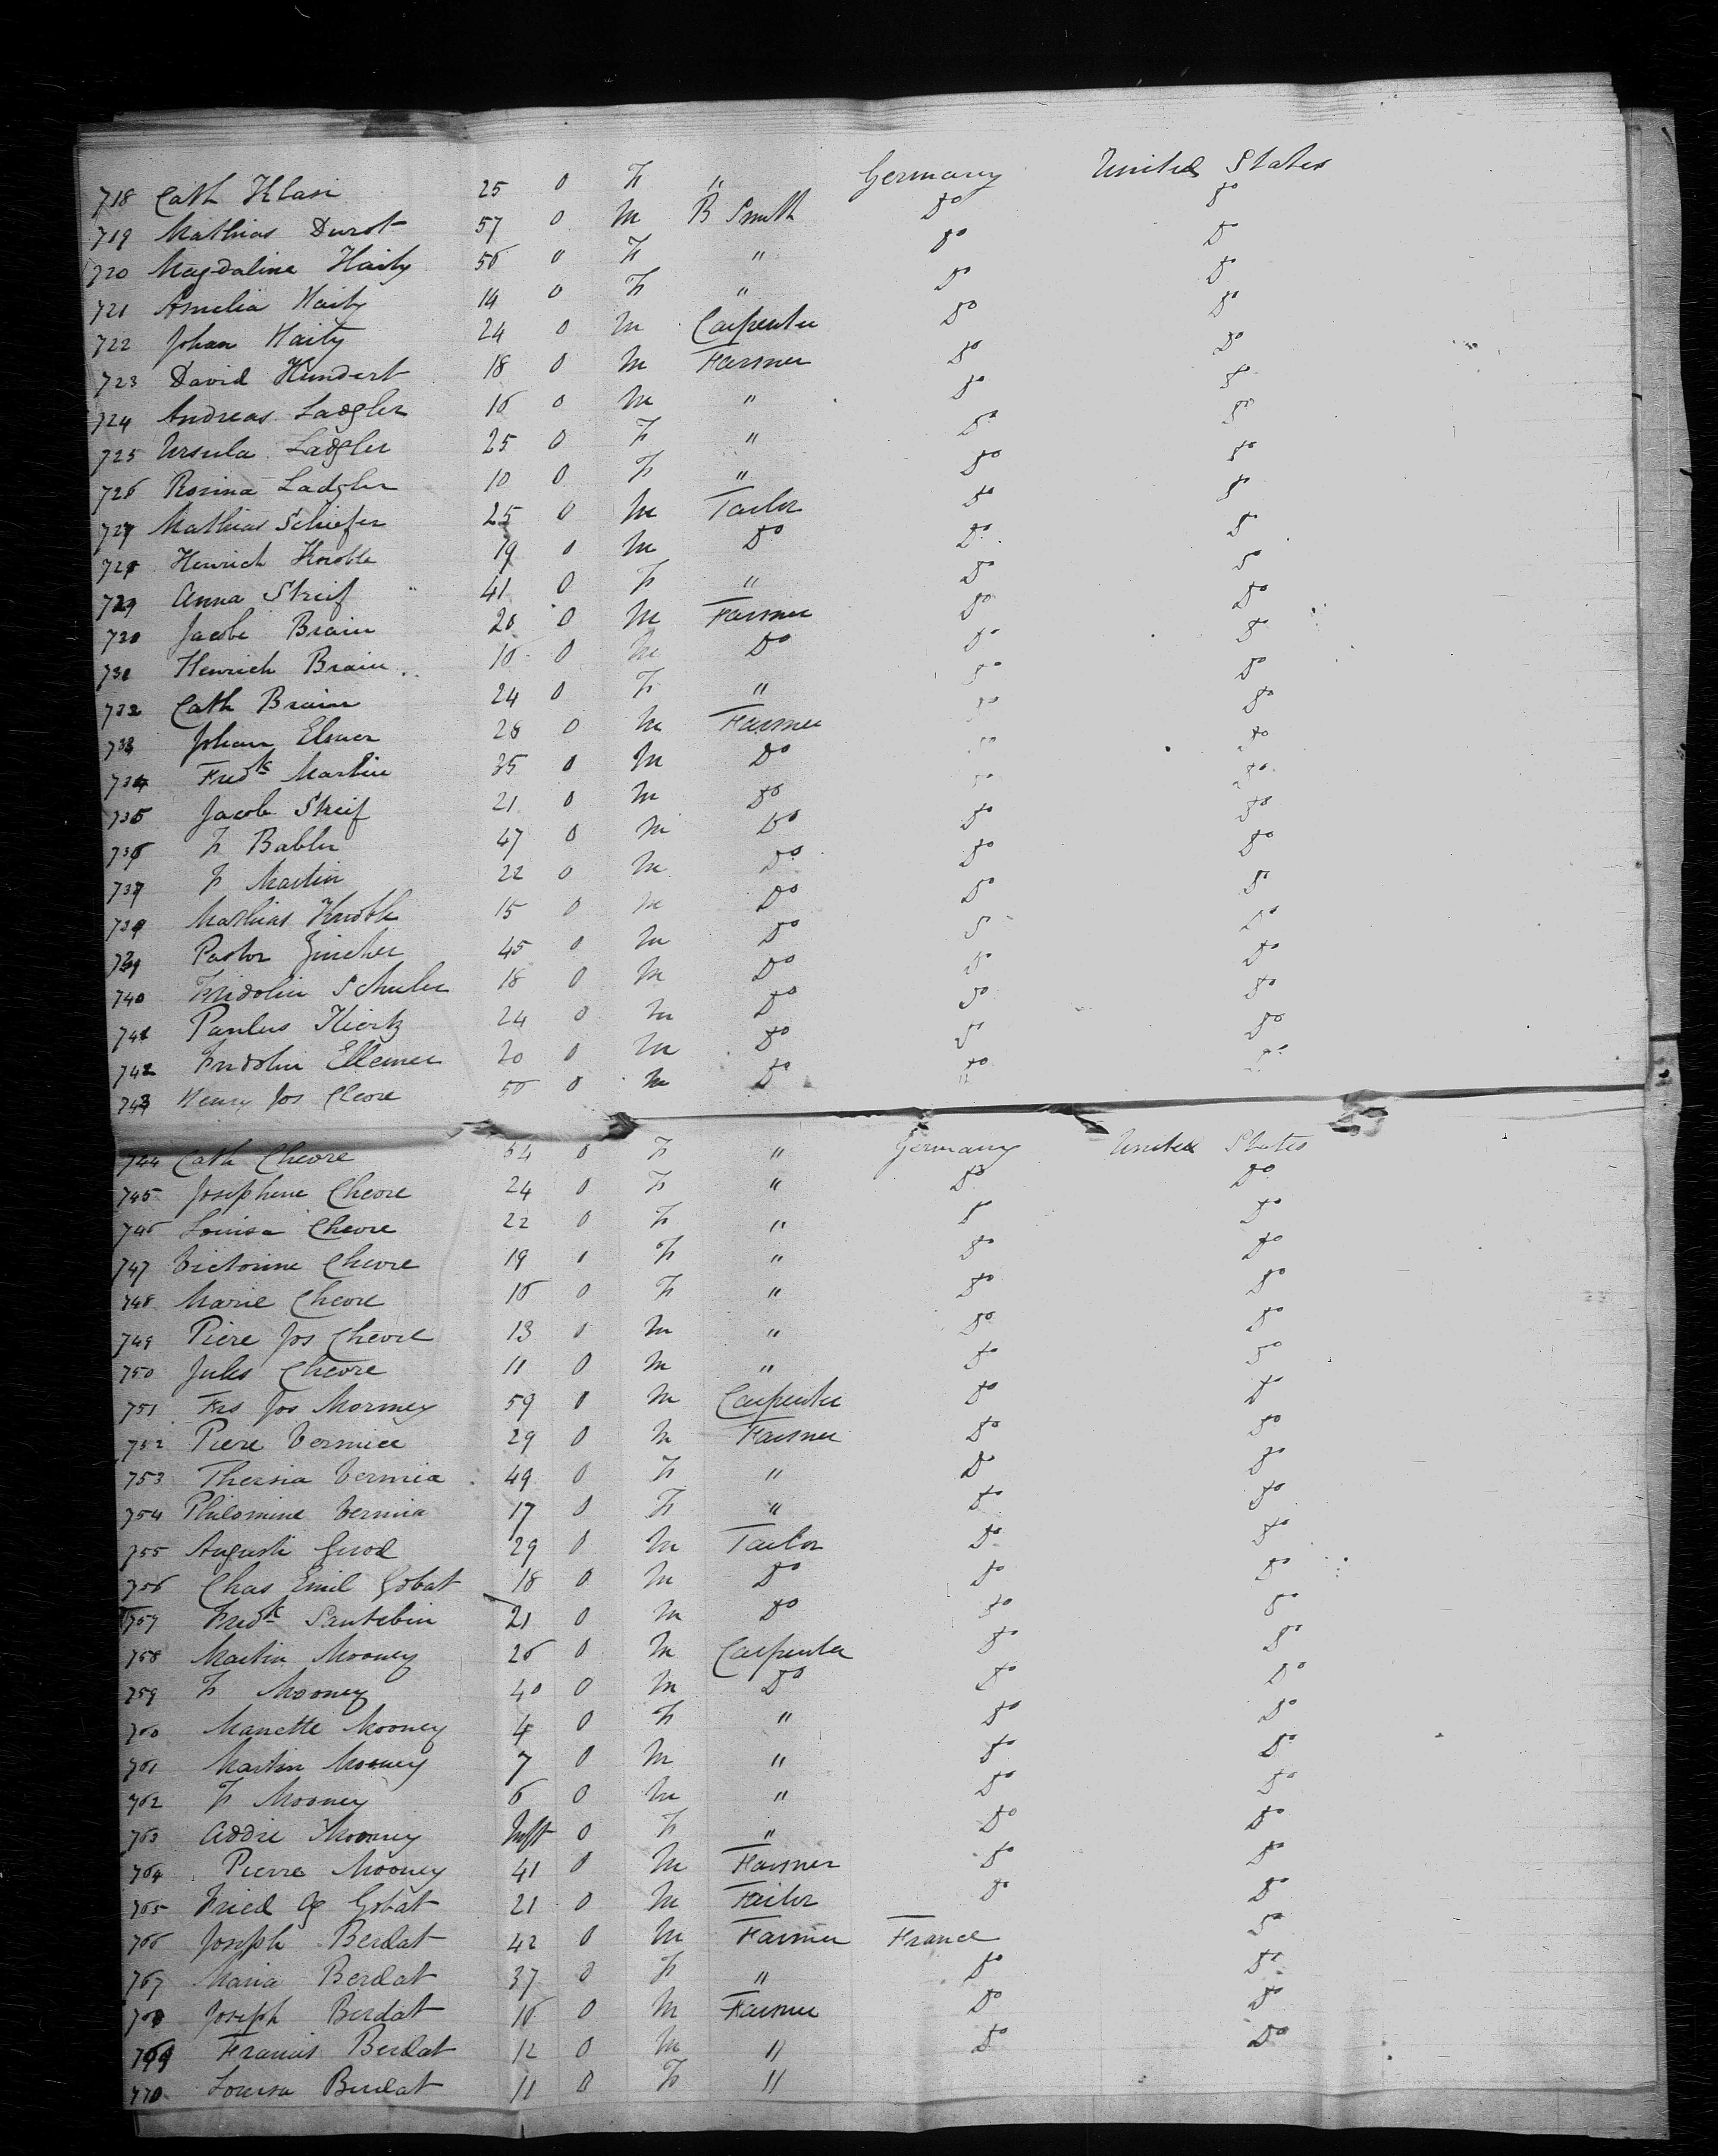 718 Cath Klasi 25 0 F " Germany United States
719 Mathias Durst 57 0 M B Smith Do Do
720 Magdalina Haity 56 0 F " Do Do
721 Amelia Haity 14 0 F " Do Do
722 Johan Haity 24 0 M Carpenter Do Do
723 David Hundert 18 0 M Farmer Do Do
724 Andreas Ladgler 16 0 M " Do Do
725 Ursula Ladgler 25 0 F " Do Do
726 Rosina Ladgler 10 0 F " Do Do
727 Mathias Schiefer 25 0 M Tailor Do Do
728 Henrich Knoble 19 0 M Do Do Do
729 Anna Streif 41 0 F " Do Do
730 Jacob Brain 20 0 M Farmer Do Do
731 Henrich Brain 16 0 M Do Do Do
732 Cath Brain 24 0 F " Do Do
733 Johan Elmer 26 0 M Farmer Do Do
734 Fredk Martin 35 0 M Do Do Do
735 Jacob Streif 21 0 M Do Do Do
736 F Babler 47 0 M Do Do Do
737 F Martin 22 0 M Do Do Do
738 Mathias Knoble 15 0 M Do Do Do
739 Pastor Zincher 45 0 M Do Do Do
740 Fridolin Schuler 18 0 M Do Do Do
741 Paulus Kiertz 24 0 M Do Do Do
742 Fridolin Ellemer 20 0 M Do Do Do
743 Henry Jos Cheore 56 0 M Do Do Do
744 Cath Cheore 54 0 F " Germany United States
745 Josephine Cheore 24 0 F " Do Do
746 Louisa Cheore 22 0 F " Do Do
747 Victorine Cheore 19 0 F " Do Do
748 Marie Cheore 16 0 F " Do Do
749 Piere Jos Cheore 13 0 M " Do Do
750 Jules Cheore 11 0 M " Do Do
751 Frs Jos Mormey 59 0 M Carpenter Do Do
752 Piere Vermiee 29 0 M Farmer Do Do
753 Thersia Vermia 49 0 F " Do Do
754 Philomine Vermia 17 0 F " Do Do
755 August Girod 29 0 M Tailor Do Do
756 Chas Emil Gobat 18 0 M Do Do Do
757 Fredk Santebin 21 0 M Do Do Do
758 Martin Mooney 26 0 M Carpenter Do Do
759 F Mooney 40 0 M Do Do Do
760 Manette Mooney 4 0 F " Do Do
761 Martin Mooney 7 0 M " Do Do
762 F Mooney 6 0 M " Do Do
763 Addie Mooney Inft 0 F " Do Do
764 Pierre Mooney 41 0 M Farmer Do Do
765 Fried Ag Gobat 21 0 M Tailor Do Do
766 Joseph Berdat 42 0 M Farmer France Do
767 Maria Berdat 37 0 F " Do Do
768 Joseph Berdat 16 0 M Farmer Do Do
769 Francis Berdat 12 0 M " Do Do
770 Louisa Berdat 11 0 F "